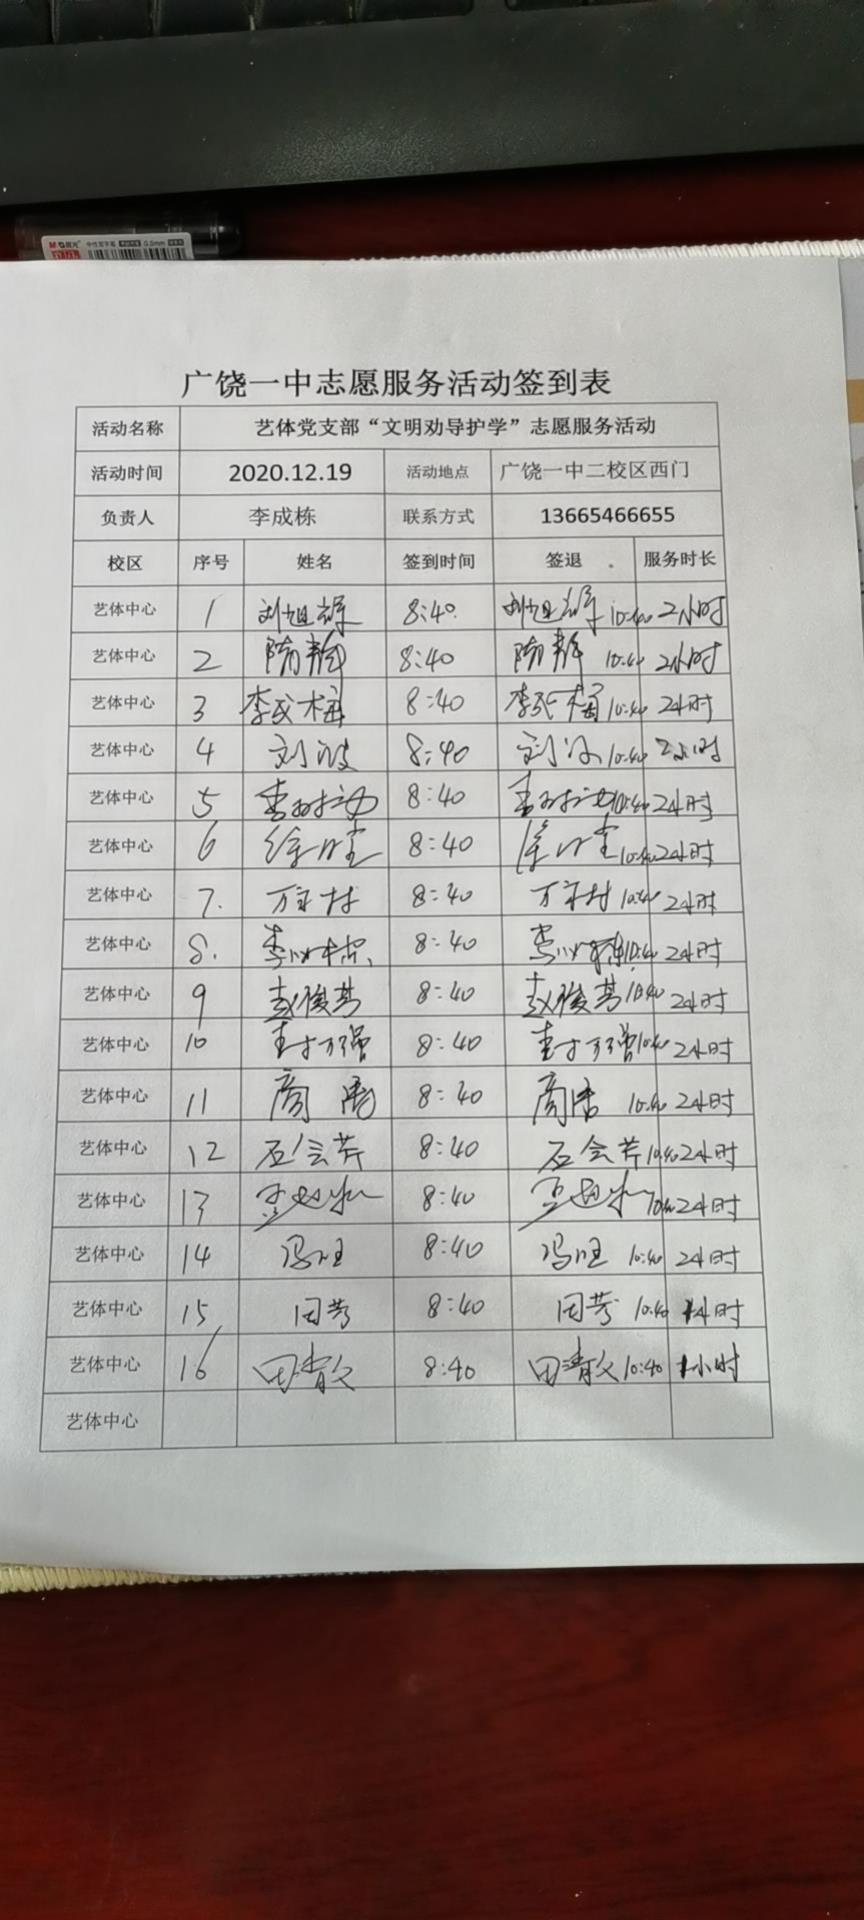 M&G晨光 中性笔替芯 0.5mm
广饶一中志愿服务活动签到表
活动名称 艺体党支部“文明劝导护学”志愿服务活动
活动时间 2020.12.19 活动地点 广饶一中二校区西门
负责人 李成栋 联系方式 13665466655
校区 序号 姓名 签到时间 签退 服务时长
艺体中心 1 刘旭 8:40 刘旭 10:40 2小时
艺体中心 2 隋静 8:40 隋静 10:40 2小时
艺体中心 3 李成栋 8:40 李成栋 10:40 2小时
艺体中心 4 刘波 8:40 刘波 10:40 2小时
艺体中心 5 8:40 10:40 2小时
艺体中心 6 徐 8:40 徐 10:40 2小时
艺体中心 7. 万 村 8:40 万 村 10:40 2小时
艺体中心 8. 李 8:40 李 10:40 2小时
艺体中心 9 赵俊芳 8:40 赵俊芳 10:40 2小时
艺体中心 10 8:40 10:40 2小时
艺体中心 11 商 8:40 商 10:40 2小时
艺体中心 12 石会芹 8:40 石会芹 10:40 2小时
艺体中心 13 8:40 10:40 2小时
艺体中心 14 冯旺 8:40 冯旺 10:40 2小时
艺体中心 15 田芳 8:40 田芳 10:40 小时
艺体中心 16 田清文 8:40 田清文 10:40 小时
艺体中心